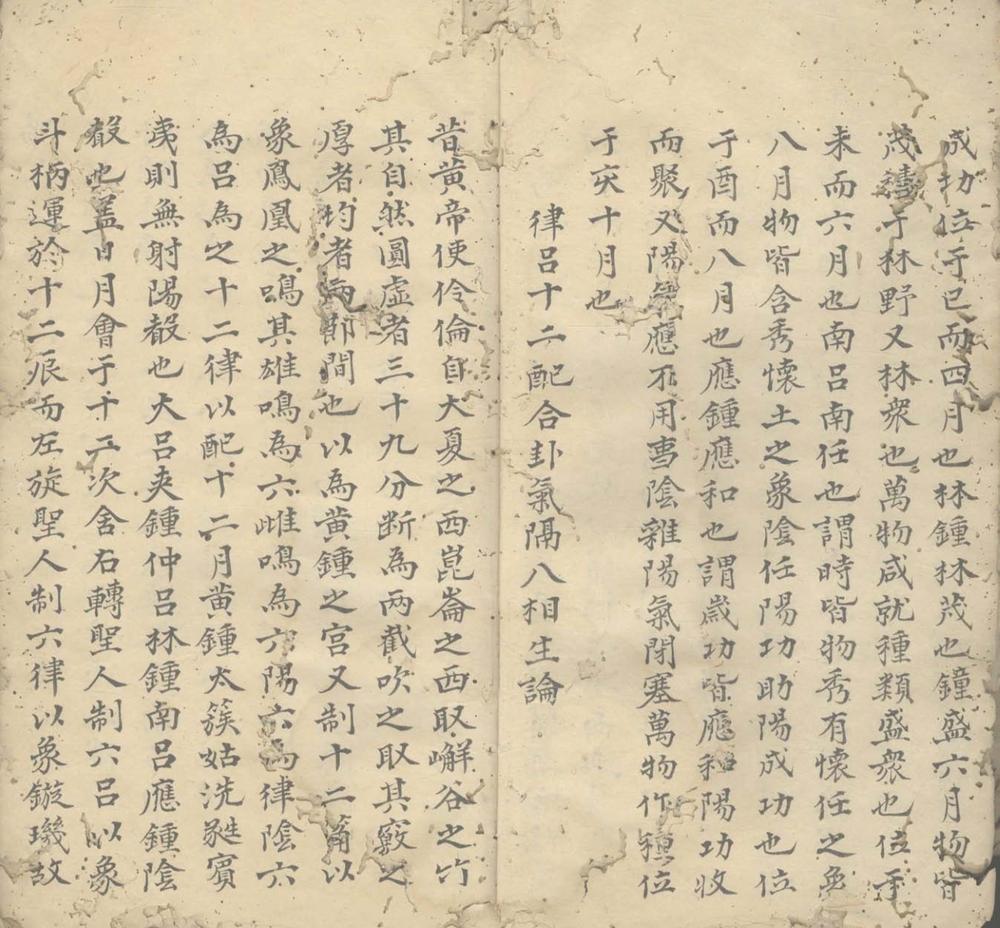 成功位于巳而四月也林鍾林茂也鐘盛六月物皆
茂於林野又林衆也萬物咸就種類盛衆也位于
未而六月也南呂南任也謂時皆物秀有懷任之象
八月物皆含秀懷土之象陰任陽功助陽成功也位
于酉而八月也應鍾應和也謂歲功皆應和陽功收
而聚又陽氣應不用事陰雜陽氣閉塞萬物作種位
于亥十月也
律呂十二配合卦氣隔八相生論
昔黃帝使伶倫自大夏之西崑崙之西取嶰谷之竹
其自然圓虛者三十九分斷為兩截吹之取其竅之
厚者均者兩節間也以為黃鍾之宮又制十二筩以
象鳳凰之鳴其雄鳴為六雌鳴為六陽六為律陰六
為呂為之十二律以配十二月黃鍾太簇姑洗蕤賓
夷則無射陽聲也大呂夾鍾仲呂林鍾南呂應鍾陰
聲也蓋日月會于十二次舍右轉聖人制六呂以象
斗柄運於十二辰而左旋聖人制六律以象鏇璣故